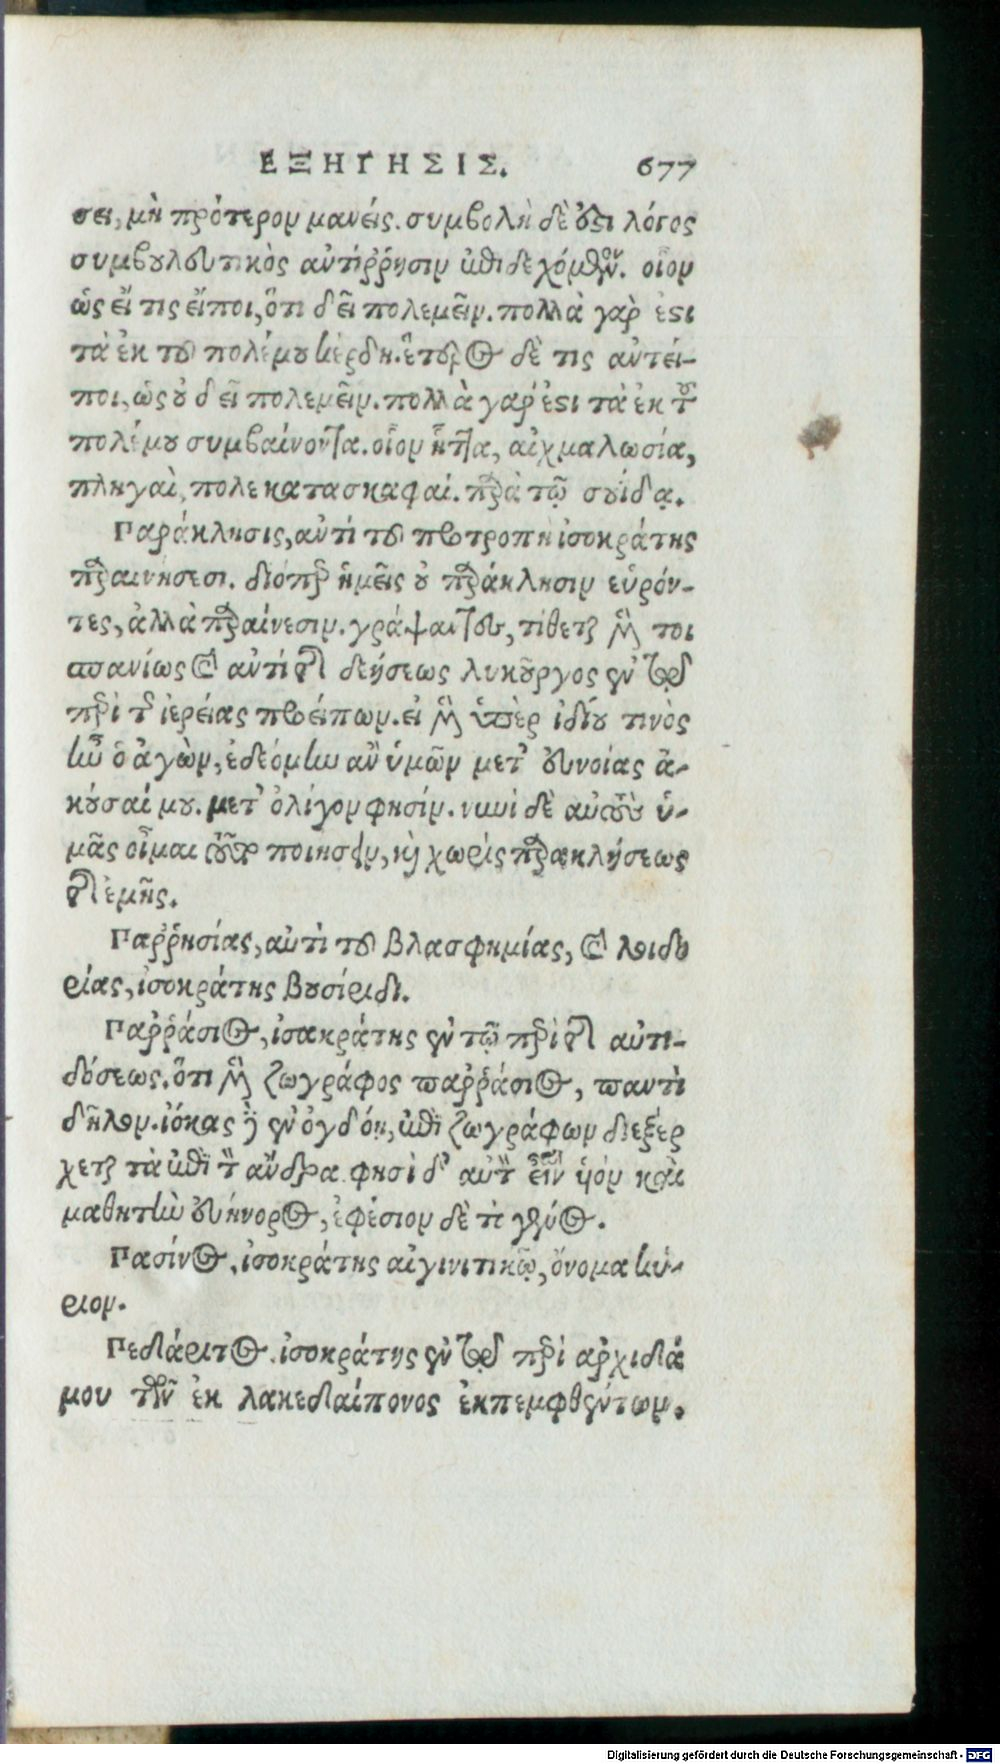 ΕΞΗΓΗΣΙΣ. 677
σει, μὴ πρότερον μανείς. συμβολὴ δὲ ὅϛι λόγος
συμβουλευτικὸς ἀντίῤῥησιν ἐπιδεχόμενον. οἷον
ὡς εἴ τις εἴποι, ὅτι δεῖ πολεμεῖν. πολλὰ γὰρ ἐϛι
τὰ ἐκ τοῦ πολέμου κέρδη. ἕτερος δὲ τις ἀντεί-
ποι, ὡς οὐ δεῖ πολεμεῖν. πολλὰ γάρ ἐϛι τὰ ἐκ τοῦ
πολέμου συμβαίνοντα. οἷον ἧττα, αἰχμαλωσία,
πληγαὶ, πολε κατασκαφαί. παρὰ τῷ σουίδᾳ.
Παράκλησις, ἀντί τοῦ προτροπὴ ἰσοκράτης
παραινήσεσι. διόπερ ἡμεῖς οὐ παράκλησιν εὑρόν-
τες, ἀλλὰ παραίνεσιν. γράψαντες, τίθεται μέν τοι
σπανίως καὶ ἀντί τῆς δεήσεως λυκοῦργος ἐν τῷ
περὶ τῆς ἱερείας προείπων. εἰ μὲν ὑπὲρ ἰδίου τινὸς
ἦν ὁ ἀγὼν, ἐδεόμην ἂν ὑμῶν μετ' εὐνοίας ἀ-
κοῦσαί μου. μετ' ὀλίγον φησίν. νυνὶ δὲ αὐτοὺς ὑ-
μᾶς οἶμαι τοῦτο ποιήσειν, καὶ χωρίς παρακλήσεως
τῆς ἐμῆς.
Παῤῥησίας, ἀντὶ τοῦ βλασφημίας, καὶ λοιδο
ρίας, ἰσοκράτης βουσίριδι.
Παῤῥάσιος, ἰσακράτης ἐν τῷ περὶ τῆς ἀντι-
δόσεως. ὅτι μὲν ζωγράφος παῤῥάσιος, παντὶ
δῆλον. ἰόκας δὲ ἐν ὀγδόῃ, ἐπὶ ζωγράφων διεξέρ
χεται τὰ ἐπὶ τὸν ἄνδρα φησὶ δ' αὐτὸν εἶναι υἱόν καὶ
μαθητὴν εὐήνορος, ἐφέσιον δὲ τὶ γένος.
Πασίνος, ἰσοκράτης αἰγινιτικῷ, ὄνομα κύ-
ριον.
Πεδιάριτος. ἰσοκράτης ἐν τῷ περὶ ἀρχιδιά
μου τῶν ἐκ λακεδαίπονος ἐκπεμφθέντων.
Digitalisierung gefördert durch die Deutsche Forschungsgemeinschaft - DFG